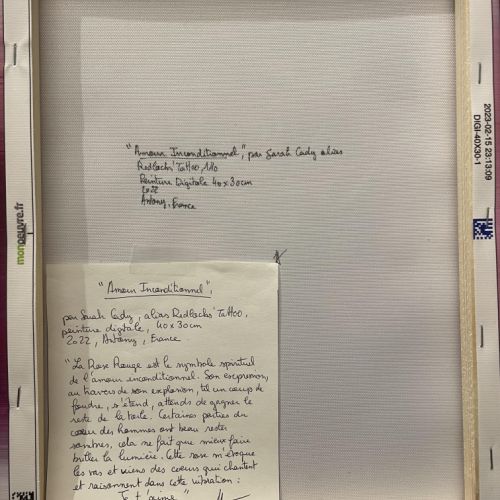 "Amour Inconditionnel", par Sarah Cady alias
Redlocks' Tattoo, 1/10
Peinture Digitale 40x30cm
2022
Antony, France
"Amour Inconditionnel",
par Sarah Cady, alias Redlocks' Tattoo,
peinture digitale, 40x30cm
2022, Antony, France
"La Rose Rouge est le symbole spirituel
de l'amour inconditionnel. Son expression,
au travers de son explosion, tel un coup de
foudre, s'étend, attends de gagner le
reste de la toile. Certaines parties du
cœur des hommes ont beau rester
sombres, cela ne fait que mieux faire
briller la lumière. Cette rose m'évoque
les vas et viens des cœurs qui chantent
et raisonnent dans cette vibration :
Je t'aime"
monoeuvre.fr
2023-02-15 23:13:09
DIGI-40X30-1